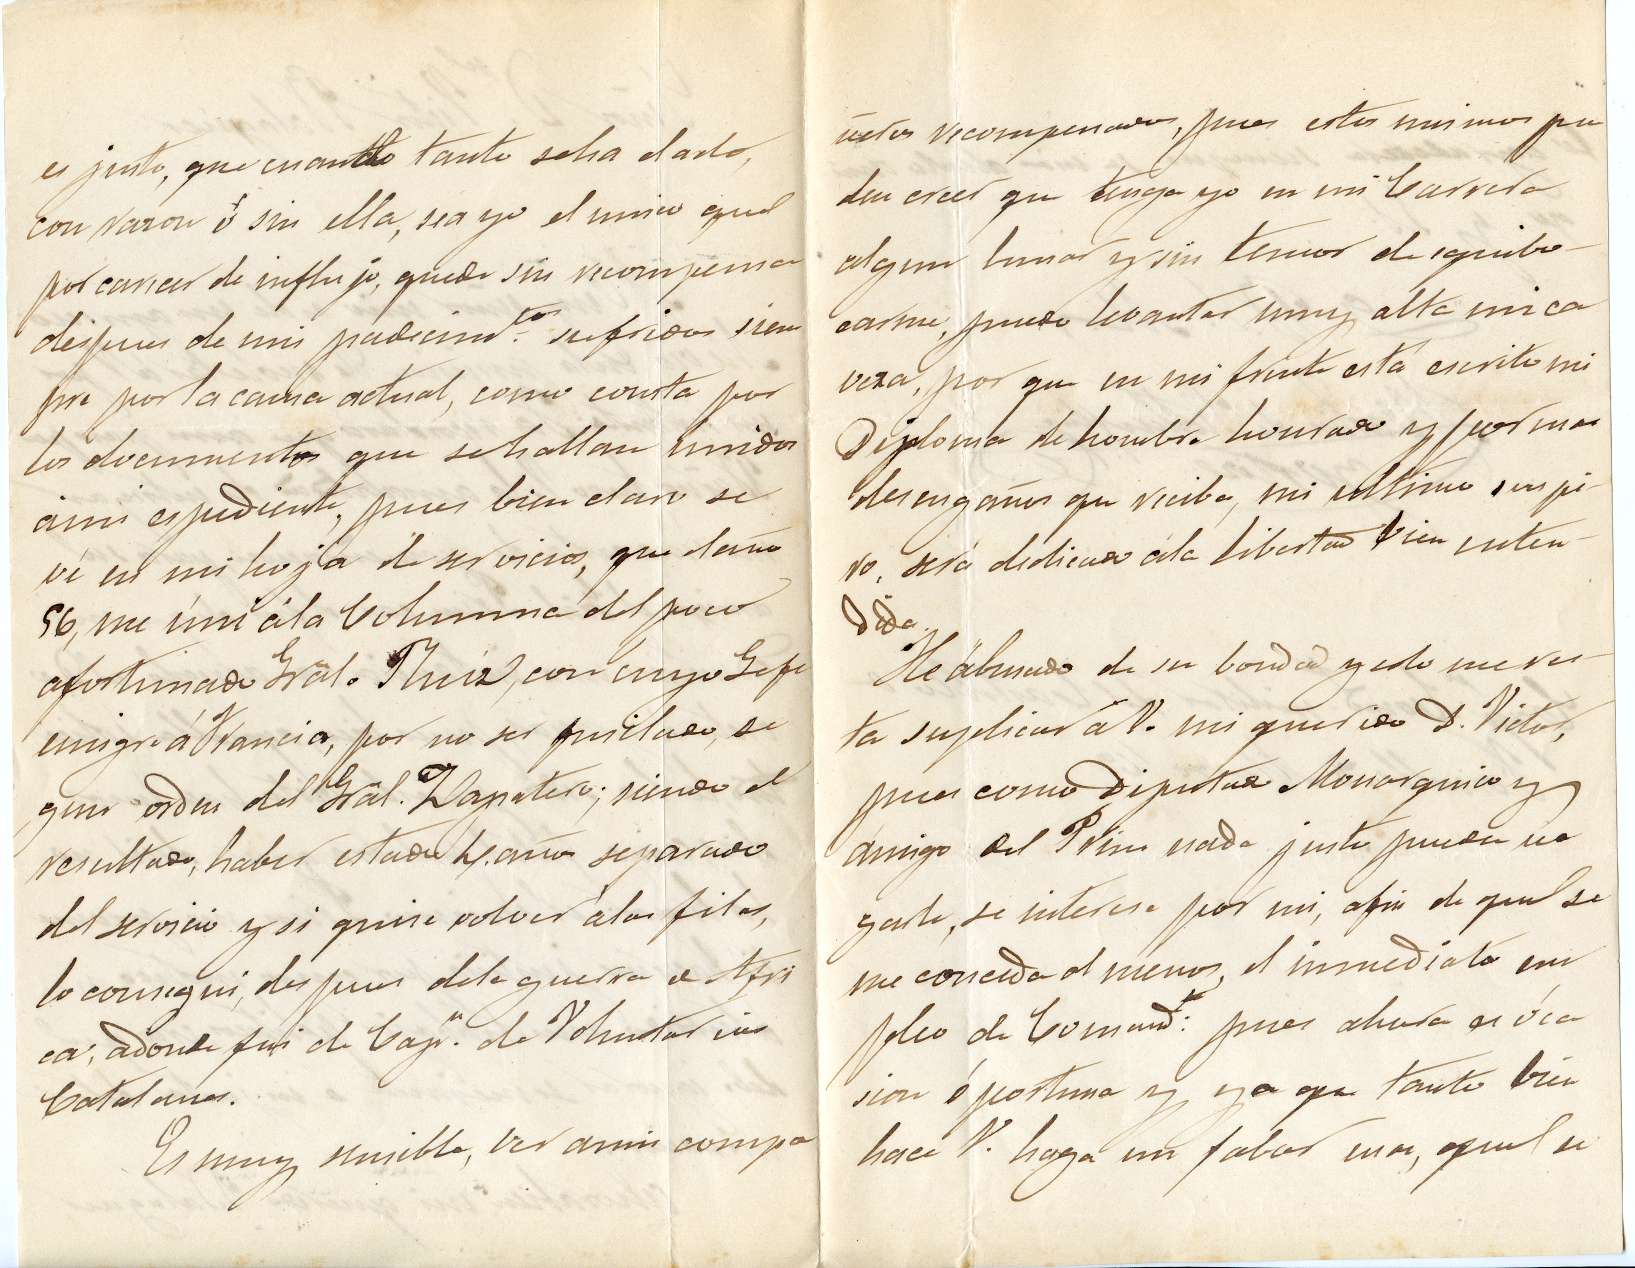 es justo, que cuando tanto se ha dado,
con razon ó sin ella, sea yo el unico quel
por carecer de influjo, quede sin recompensa
despues de mis padecimtos. sufridos siem
pre por la causa actual, como consta por
los documentos que se hallan unidos
ámi espediente, pues bien claro se
vé en mi hoja de servicios, que el año
56, me úni ála Columna del poco
afortunado Gral. Ruiz, con cuyo Gefe
emigre á Francia, por no ser fusilado, se
gun orden del Gral. Zapatero; siendo el
resultado, haber estado 4 años separado
del servicio y si quise volver álas filas,
lo consegui, despues dela guerra de Afri
ca, adonde fui de Capn. de Voluntarios
Catalanes.
Es muy sensible, ver amis compa
ñeros recompensados, pues estos mismos pu
den creer que tenga yo en mi Carrera
algun lunar y sin temor de equibo-
carme, puedo levantar muy alta mi ca
veza, por que en mi frente está escrito mi
Diploma de hombre honrado y por mas
desengaños que reciba, mi ultimo suspi-
ro, será dedicado ála libertad bien enten-
dida.
He ábusado de su bondad y solo me res-
ta suplicar á V. mi querido D. Victor,
pues como Diputado Monarquico y
ámigo del Prim nada justo pueden ne
garle, se interese por mi, afin de quel se
me conceda al menos, el inmediato em
pleo de Comandte: pues ahora es óca
sion óportuna y ya que tanto bien
hace V. haga un fabor mas, quel se